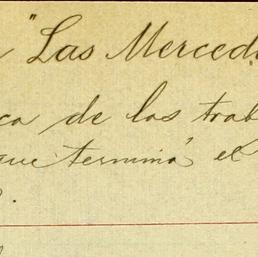 "Las Merced
ca de los trab
que terminó el